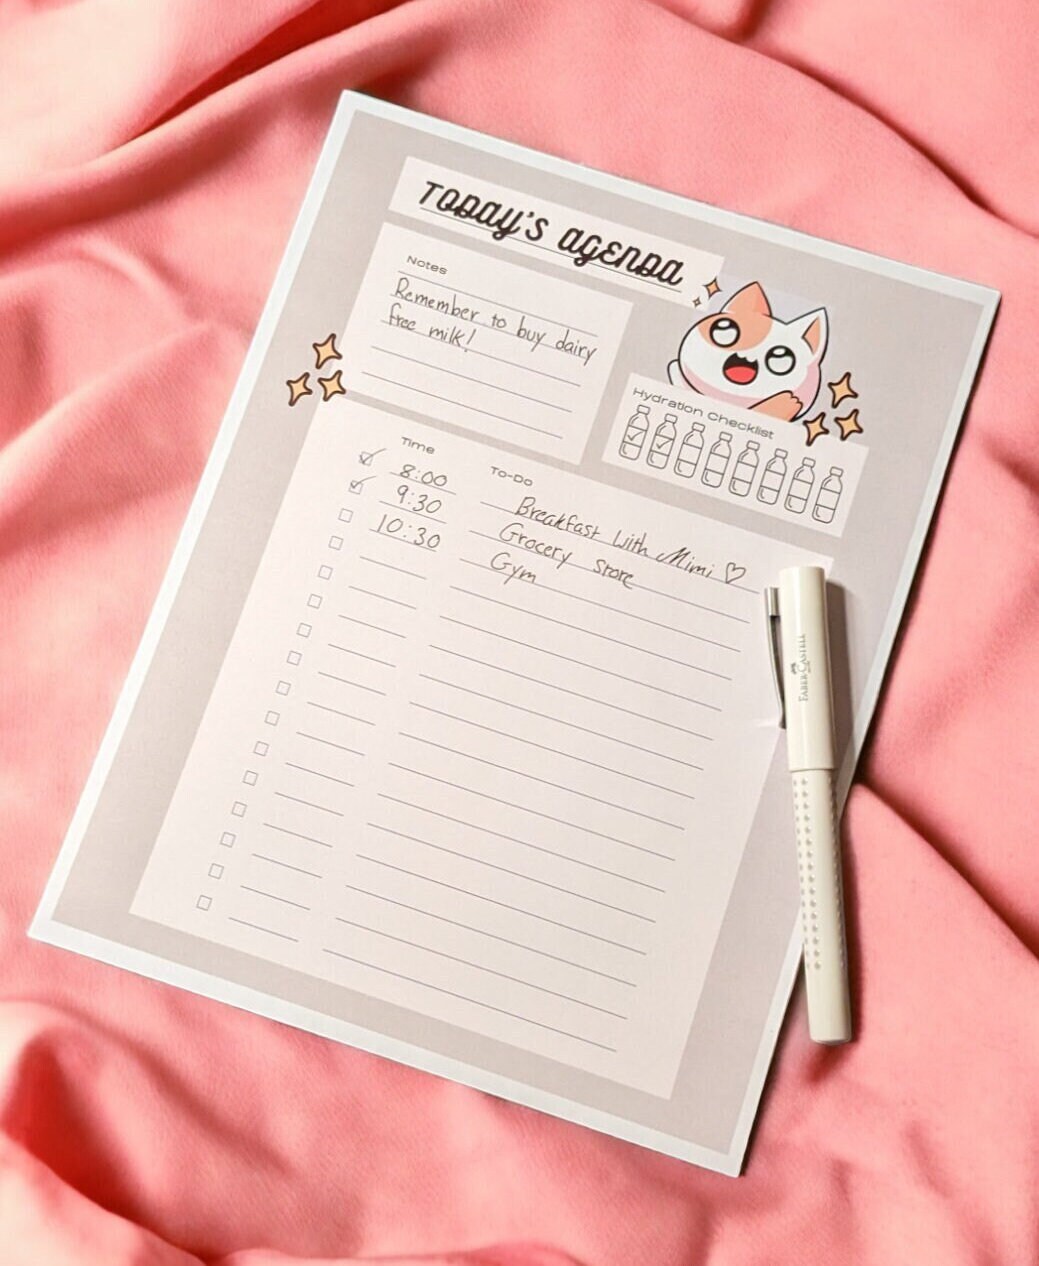 TODAY'S AGENDA
Notes
Remember to buy dairy
free milk!
Hydration Checklist
Time To-Do
8:00 Breakfast with Mimi ♡
9:30 Grocery store
10:30 Gym
FABER-CASTELL